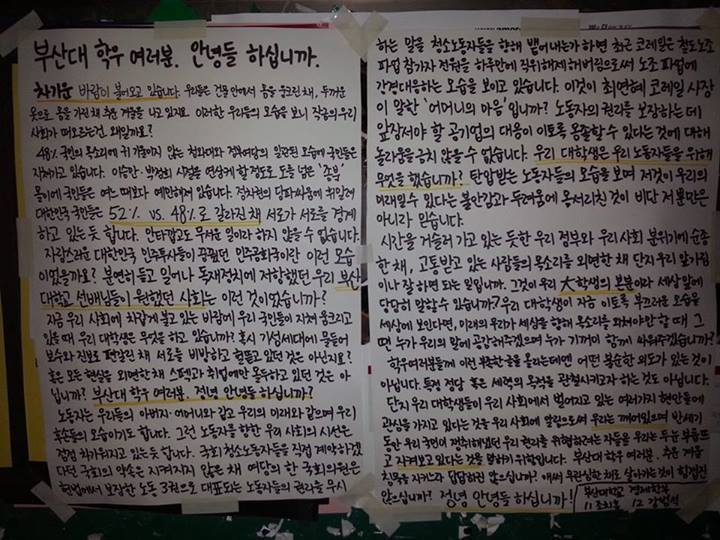 부산대 학우 여러분. 안녕들 하십니까.
차가운 바람이 불어오고 있습니다. 우리들은 건물 안에서 몸을 웅크린 채, 두꺼운
옷으로 몸을 가린 채 추운 겨울을 나고 있지요. 이러한 우리들의 모습을 보니 작금의 우리
사회가 떠오르는건, 왜일까요?
48% 국민의 목소리에 귀 기울이지 않는 청와대와 정부여당의 일관된 모습에 국민들은
지쳐가고 있습니다. 이승만·박정희 시절을 연상케 할 정도로 도를 넘은 '종북'
몰이에 국민들은 여느 때보다 예민해져 있습니다. 정치권의 당파싸움에 휘말려
대한민국 국민들은 52% vs. 48%로 갈라진 채 서로가 서로를 경계
하고 있는 듯 합니다. 안타깝고도 무서운 일이라 하지 않을 수 없습니다.
자랑스러운 대한민국 민주투사들이 꿈꿨던 민주공화국이란 이런 모습
이었을까요? 분연히 들고 일어나 독재정치에 저항했던 우리 부산
대학교 선배님들이 원했던 사회는 이런 것이었습니까?
지금 우리 사회에 차갑게 불고 있는 바람에 우리 국민들이 지쳐 웅크리고
있을 때 우리 대학생은 무엇을 하고 있습니까? 혹시 기성세대에 물들어
보수와 진보로 편갈린 채 서로를 비방하고 헐뜯고 있던 것은 아닌지요?
혹은 모든 현실을 외면한 채 스펙과 취업에만 몰두하고 있던 것은 아
닙니까? 부산대 학우 여러분. 정녕 안녕들 하십니까?
노동자는 우리들의 아버지·어머니와 같고 우리의 미래와 같으며 우리
후손들의 모습이기도 합니다. 그런 노동자를 향한 우리 사회의 시선은
점점 차가워지고 있는 듯 합니다. 국회 청소노동자들을 직접 계약하겠
다던 국회의 약속은 지켜지지 않은 채 여당의 한 국회의원은
헌법에서 보장한 노동 3권으로 대표되는 노동자들의 권리를 무시
하는 말을 청소노동자들을 향해 뱉어내는가 하면 최근 코레일은 철도노조
파업 참가자 전원을 하루만에 직위해제 해버림으로써 노조 파업에
강경대응하는 모습을 보이고 있습니다. 이것이 최연혜 코레일 사장
이 말한 '어머니의 마음'입니까? 노동자의 권리를 보장하는 데
앞장서야 할 공기업의 대응이 이토록 옹졸할 수 있다는 것에 대해
놀라움을 금치 않을 수 없습니다. 우리 대학생은 우리 노동자들을 위해
무엇을 했습니까? 탄압받는 노동자들의 모습을 보며 저것이 우리의
미래일 수 있다는 불안감과 두려움에 몸서리친 것이 비단 저 뿐만은
아니라 믿습니다.
시간을 거슬러 가고 있는 듯한 우리 정부와 우리 사회 분위기에 순종
한 채, 고통받고 있는 사람들의 목소리를 외면한 채 단지 우리 앞가림
이나 잘 하면 되는 일입니까. 그것이 우리 大학生의 본분이라 세상 앞에
당당히 말할 수 있습니까? 우리 대학생이 지금 이토록 부끄러운 모습을
세상에 보인다면, 미래의 우리가 세상을 향해 목소리를 외쳐야만 할 때 그
땐 누가 우리의 말에 공감해주겠으며 누가 기꺼이 함께 싸워주겠습니까?
학우여러분들께 이런 부족한 글을 올리는데엔 어떤 불순한 의도가 있는 것이
아닙니다. 특정 정당 혹은 세력의 목적을 관철시키고자 하는 것도 아닙니다.
단지 우리 대학생들이 우리 사회에서 벌어지고 있는 여러가지 현안들에
관심을 가지고 있다는 것을 우리 사회에 알림으로써 우리는 깨어있으며 반세기
동안 우리 국민이 쟁취해냈던 우리 권리를 위협하려는 자들을 우리는 두 눈 부릅뜨
고 지켜보고 있다는 것을 밝히기 위함입니다. 부산대 학우 여러분. 추운 겨울
침묵을 지키느라 답답하진 않으십니까? 애써 무관심한 채로 살아가는 것이 힘겹진
않으십니까? 정녕 안녕들 하십니까!
부산대학교 경제학부
11 조치호 12 강범석